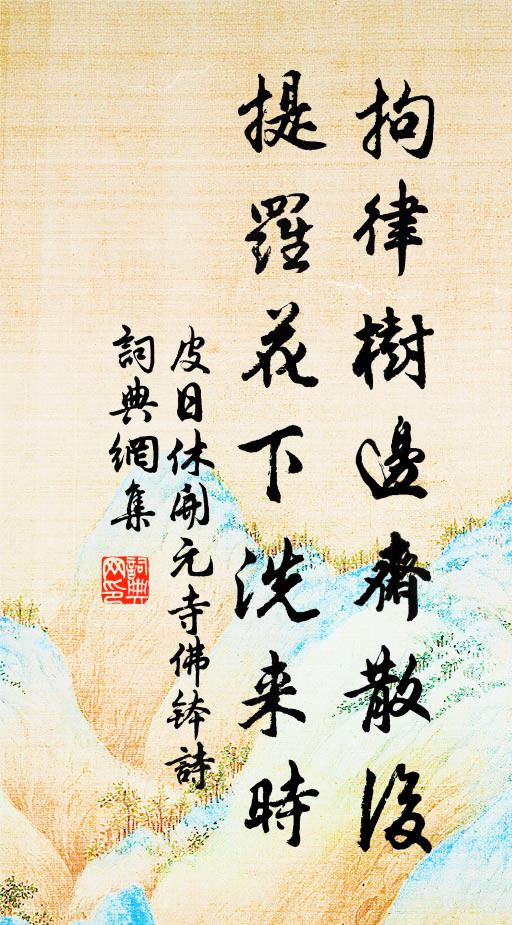 拘律樹邊齋散後
提羅花下洗来時
皮日休開元寺佛鉢詩
詞典網集
詞典
网印